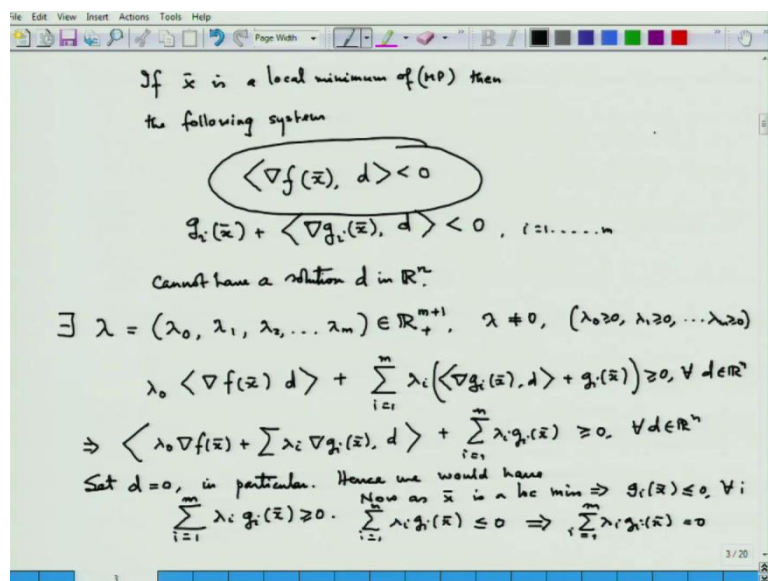 File Edit View Insert Actions Tools Help
Page Width
B I
If x̄ is a local minimum of (MP) then
the following system
⟨∇f(x̄), d⟩ < 0
gᵢ(x̄) + ⟨∇gᵢ(x̄), d⟩ < 0, i=1.....m
cannot have a solution d in ℝⁿ.
∃ λ = (λ₀, λ₁, λ₂, ... λₘ) ∈ ℝ₊ᵐ⁺¹, λ ≠ 0, (λ₀≥0, λ₁≥0, ...λₘ≥0)
λ₀ ⟨∇f(x̄) d⟩ + ∑ᵢ₌₁ᵐ λᵢ(⟨∇gᵢ(x̄), d⟩ + gᵢ(x̄)) ≥ 0, ∀ d∈ℝⁿ
⇒ ⟨λ₀∇f(x̄) + ∑λᵢ ∇gᵢ(x̄), d⟩ + ∑ᵢ₌₁ᵐ λᵢgᵢ(x̄) ≥ 0, ∀d∈ℝⁿ
Set d=0, in particular. Hence we would have
Now as x̄ is a loc min ⇒ gᵢ(x̄) ≤ 0, ∀ i
∑ᵢ₌₁ᵐ λᵢgᵢ(x̄) ≥ 0. ∑ᵢ₌₁ᵐ λᵢgᵢ(x̄) ≤ 0 ⇒ ∑ᵢ₌₁ᵐ λᵢgᵢ(x̄) = 0
3 / 20
3